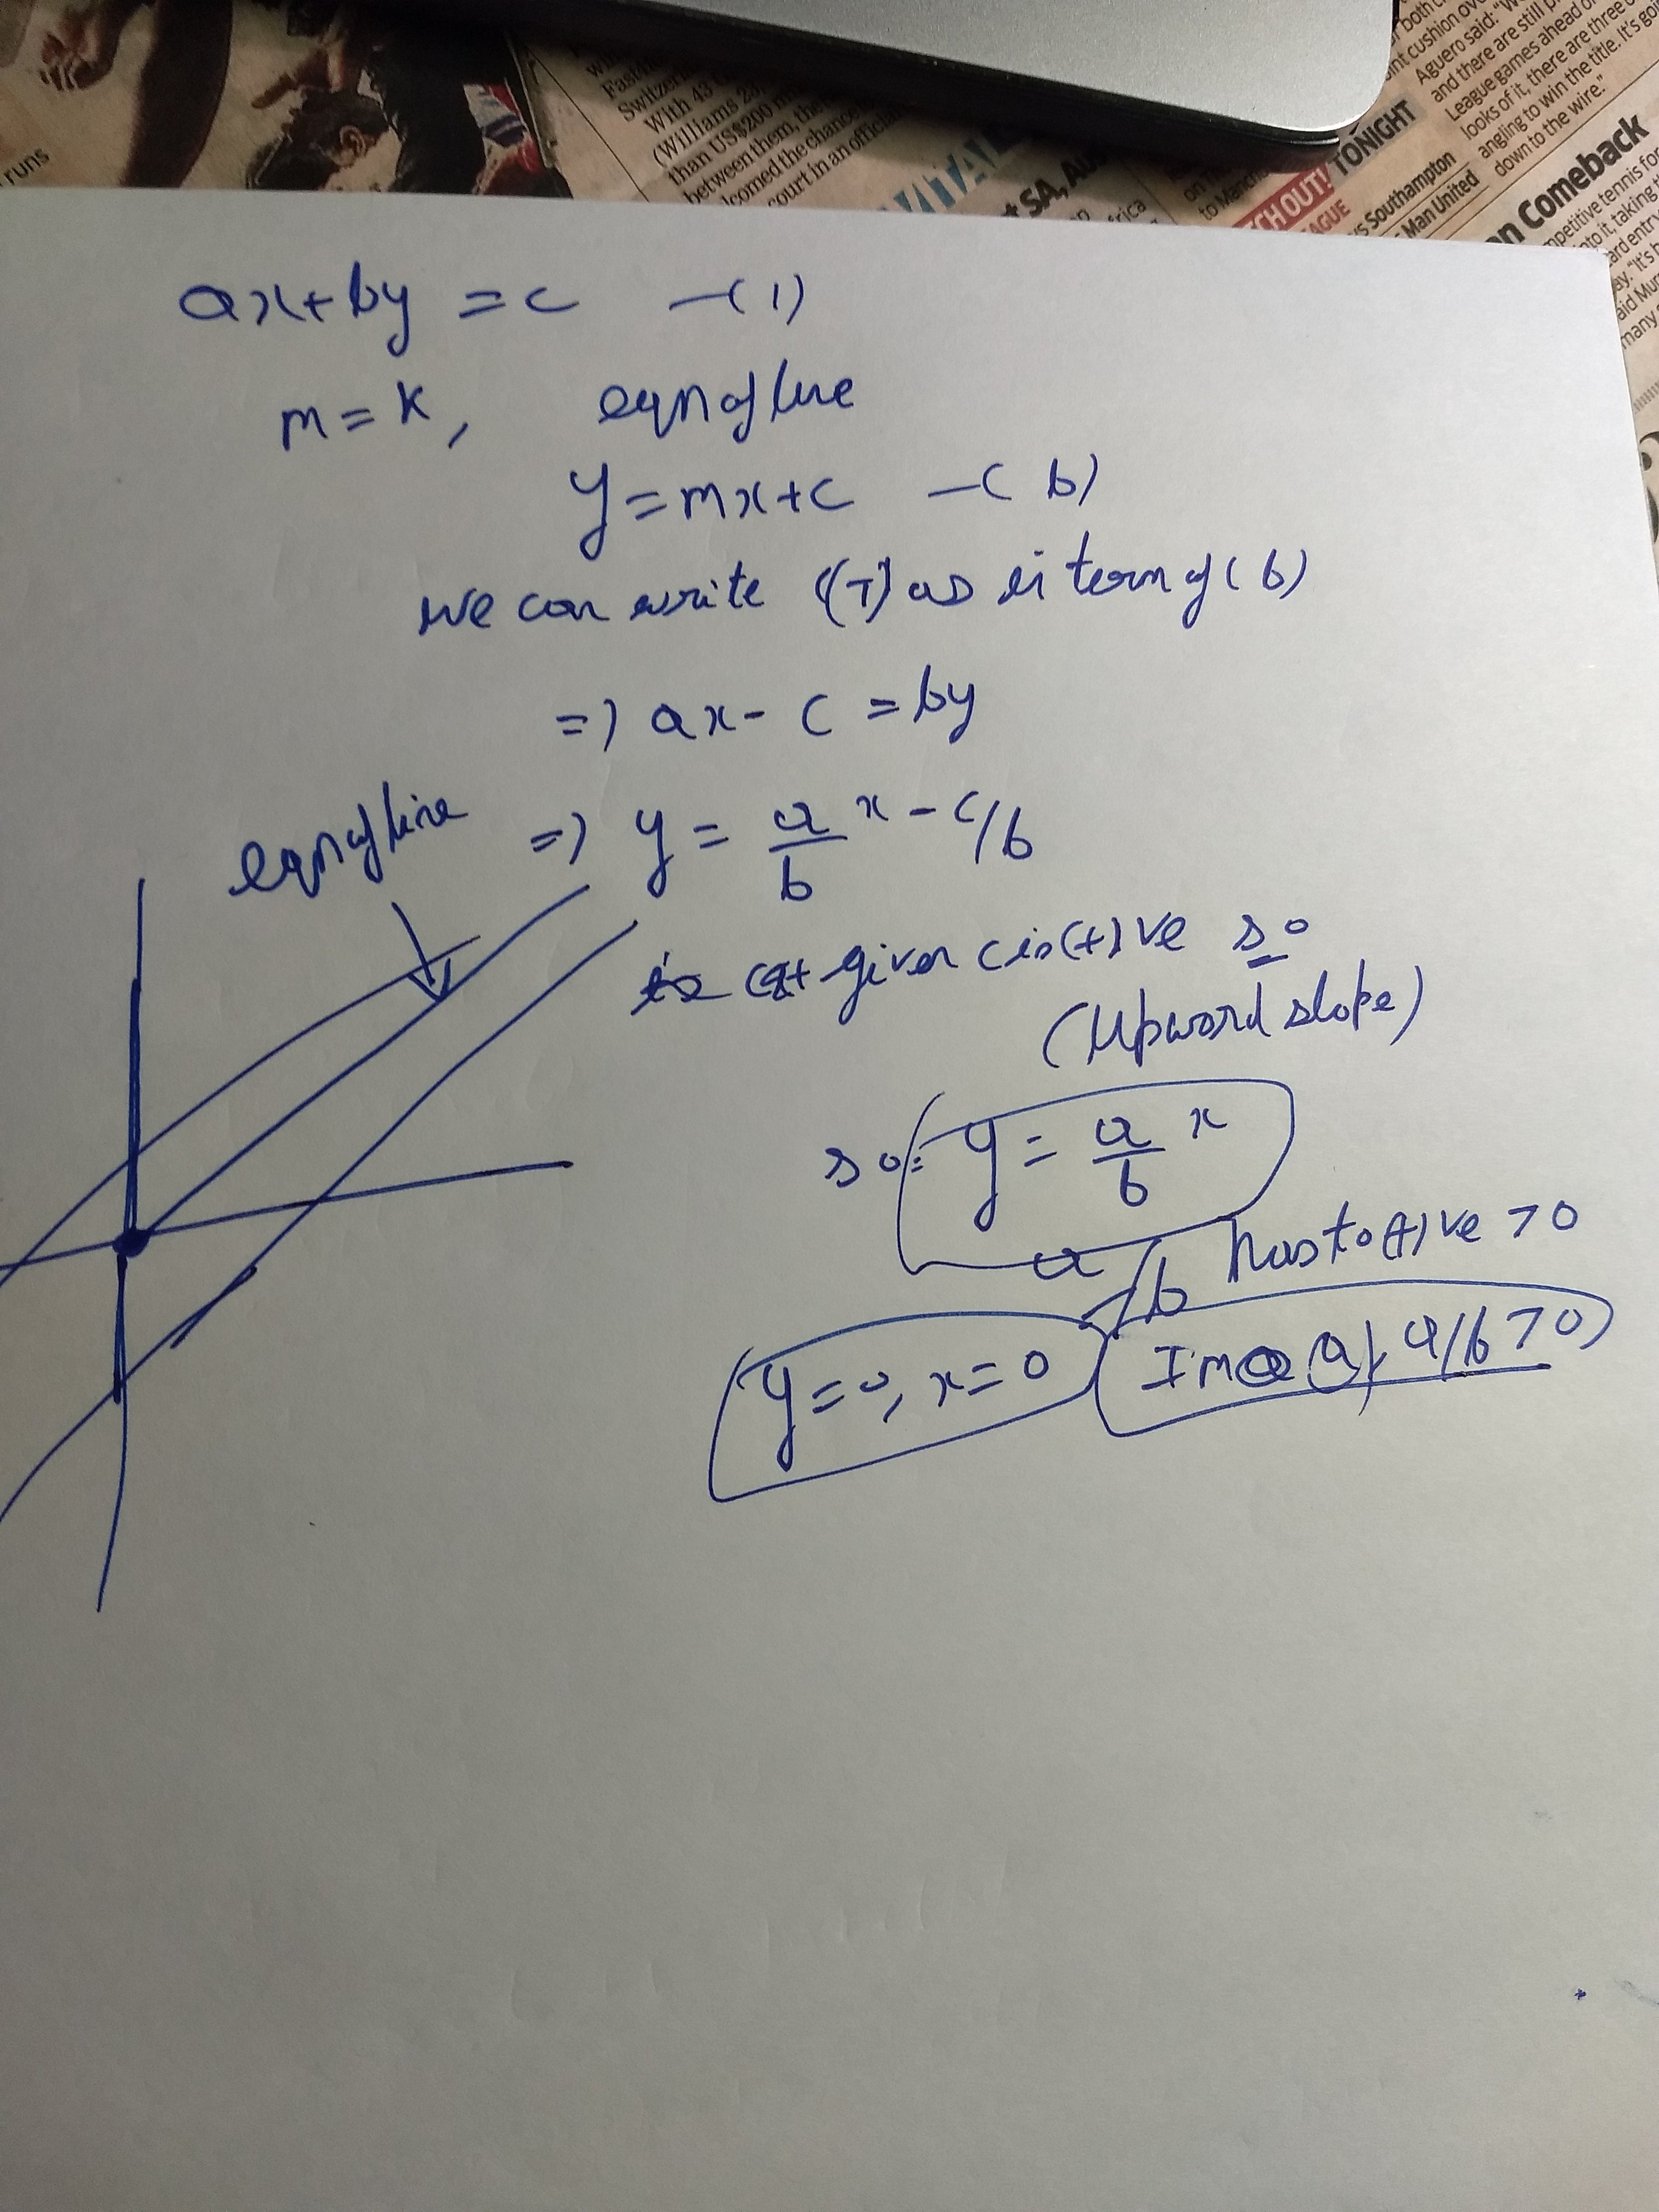 runs
Fast
Switzer
With 43
(Williams 23
than US$200 m
between them, the
lcomed the chance
court in an official
VITAL
SA, AU
frica
on
to Manch
CH OUT! TONIGHT
AGUE
vs Southampton
Man United
both
int cushion ov
Aguero said: "W
and there are still
League games ahead o
looks of it, there are three
angling to win the title. It's goi
down to the wire."
on Comeback
mpetitive tennis for
nto it, taking
ard entry
ay. "It's
aid Mur
many
ax+by = c —(1)
m = k, eqn of line
y = mx+c —(b)
we can write (1) as in term of (b)
=) ax - c = by
eqn of line =) y = a/b x - c/b
given c is (+)ve so
(Upward slope)
so: y = a/b x
a/b has to (+)ve >0
y=0, x=0 a/b >0